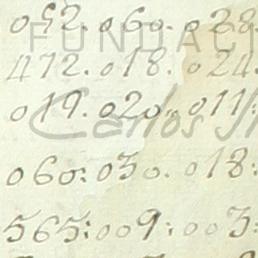 052. 060. 028.
FUNDACI
472. 018. 024.
019. 020. 011:
Carlos
060: 030. 018:
565: 009: 003: